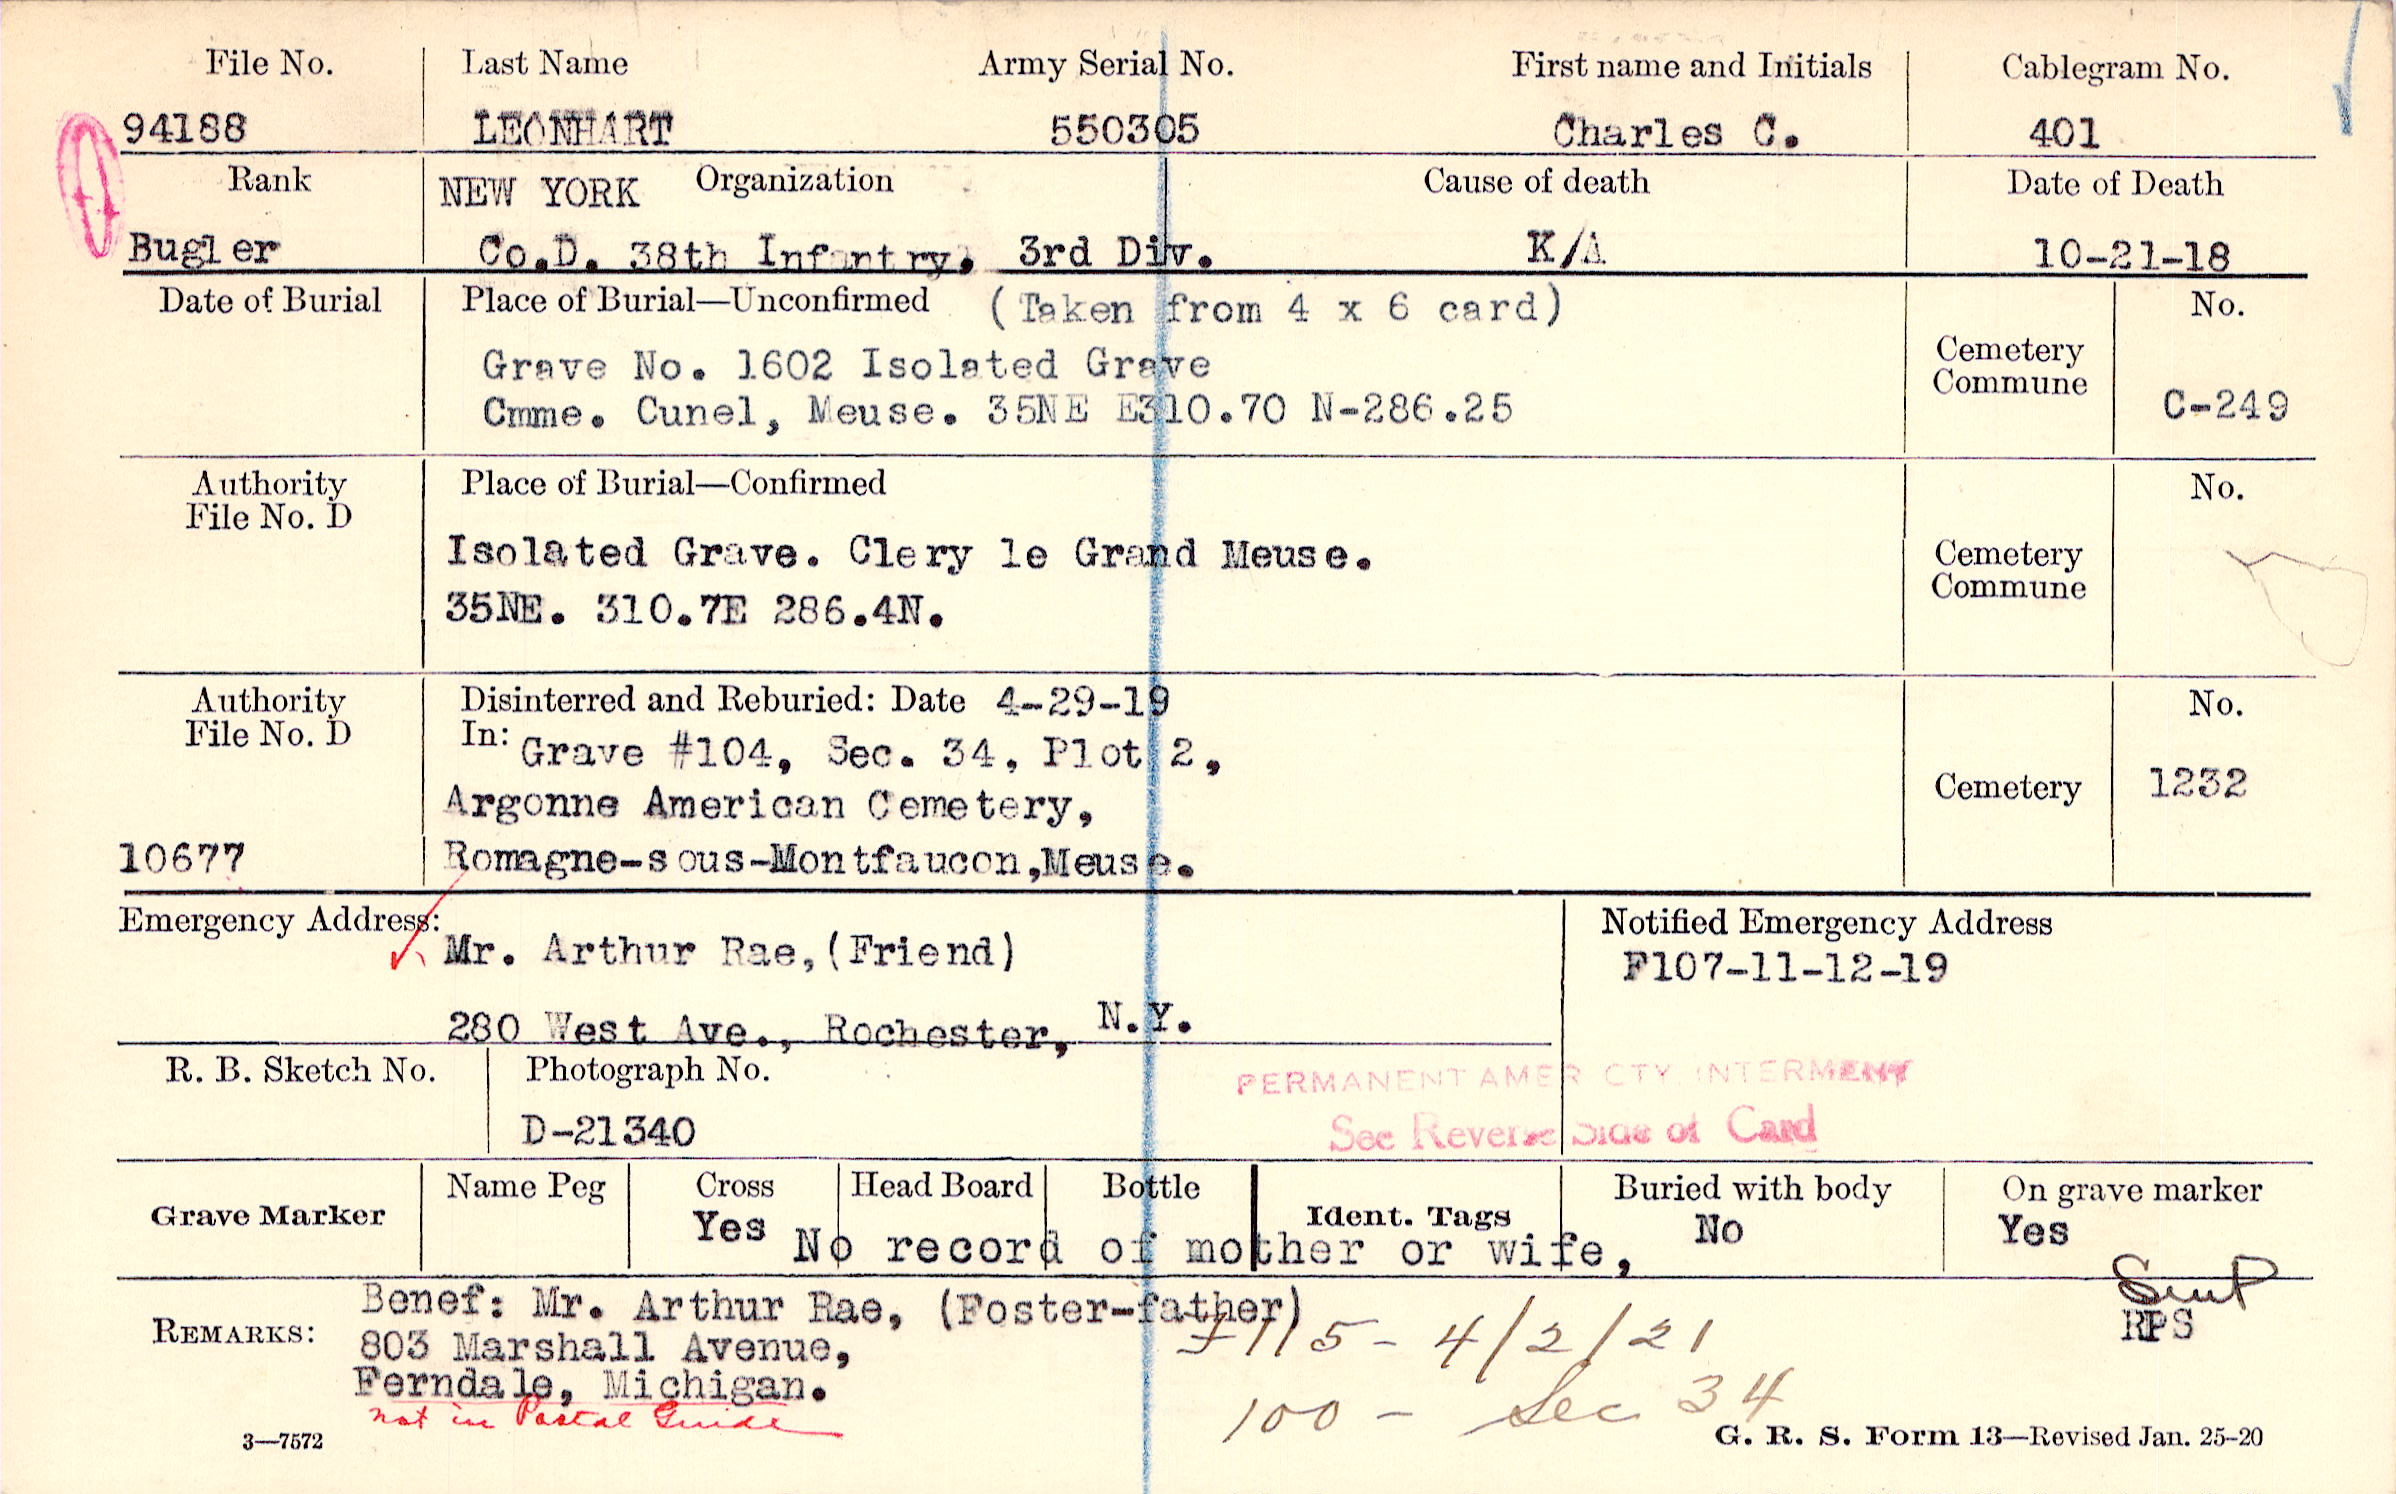 File No. Last Name Army Serial No. First name and Initials Cablegram No.
94188 LEONHART 550305 Charles C. 401
Rank NEW YORK Organization Cause of death Date of Death
Bugler Co.D. 38th Infantry, 3rd Div. K/A 10-21-18
Date of Burial Place of Burial—Unconfirmed (Taken from 4 x 6 card) No.
Grave No. 1602 Isolated Grave Cemetery
Cmme. Cunel, Meuse. 35NE E310.70 N-286.25 Commune C-249
Authority Place of Burial—Confirmed No.
File No. D
Isolated Grave. Clery le Grand Meuse. Cemetery
35NE. 310.7E 286.4N. Commune
Authority Disinterred and Reburied: Date 4-29-19 No.
File No. D In: Grave #104, Sec. 34, Plot 2,
Argonne American Cemetery, Cemetery 1232
10677 Romagne-sous-Montfaucon,Meuse.
Emergency Address: Notified Emergency Address
Mr. Arthur Rae,(Friend) F107-11-12-19
280 West Ave., Rochester, N.Y.
R. B. Sketch No. Photograph No. PERMANENT AMER CTY INTERMENT
D-21340 See Reverse Side of Card
Grave Marker Name Peg Cross Head Board Bottle Ident. Tags Buried with body On grave marker
Yes No Yes
No record of mother or wife,
REMARKS: Benef: Mr. Arthur Rae, (Foster-father)
803 Marshall Avenue, 115 - 4/2/21 RPS
Ferndale, Michigan.
not in Postal Guide 100 - Sec 34
3—7572 G. R. S. Form 13—Revised Jan. 25-20